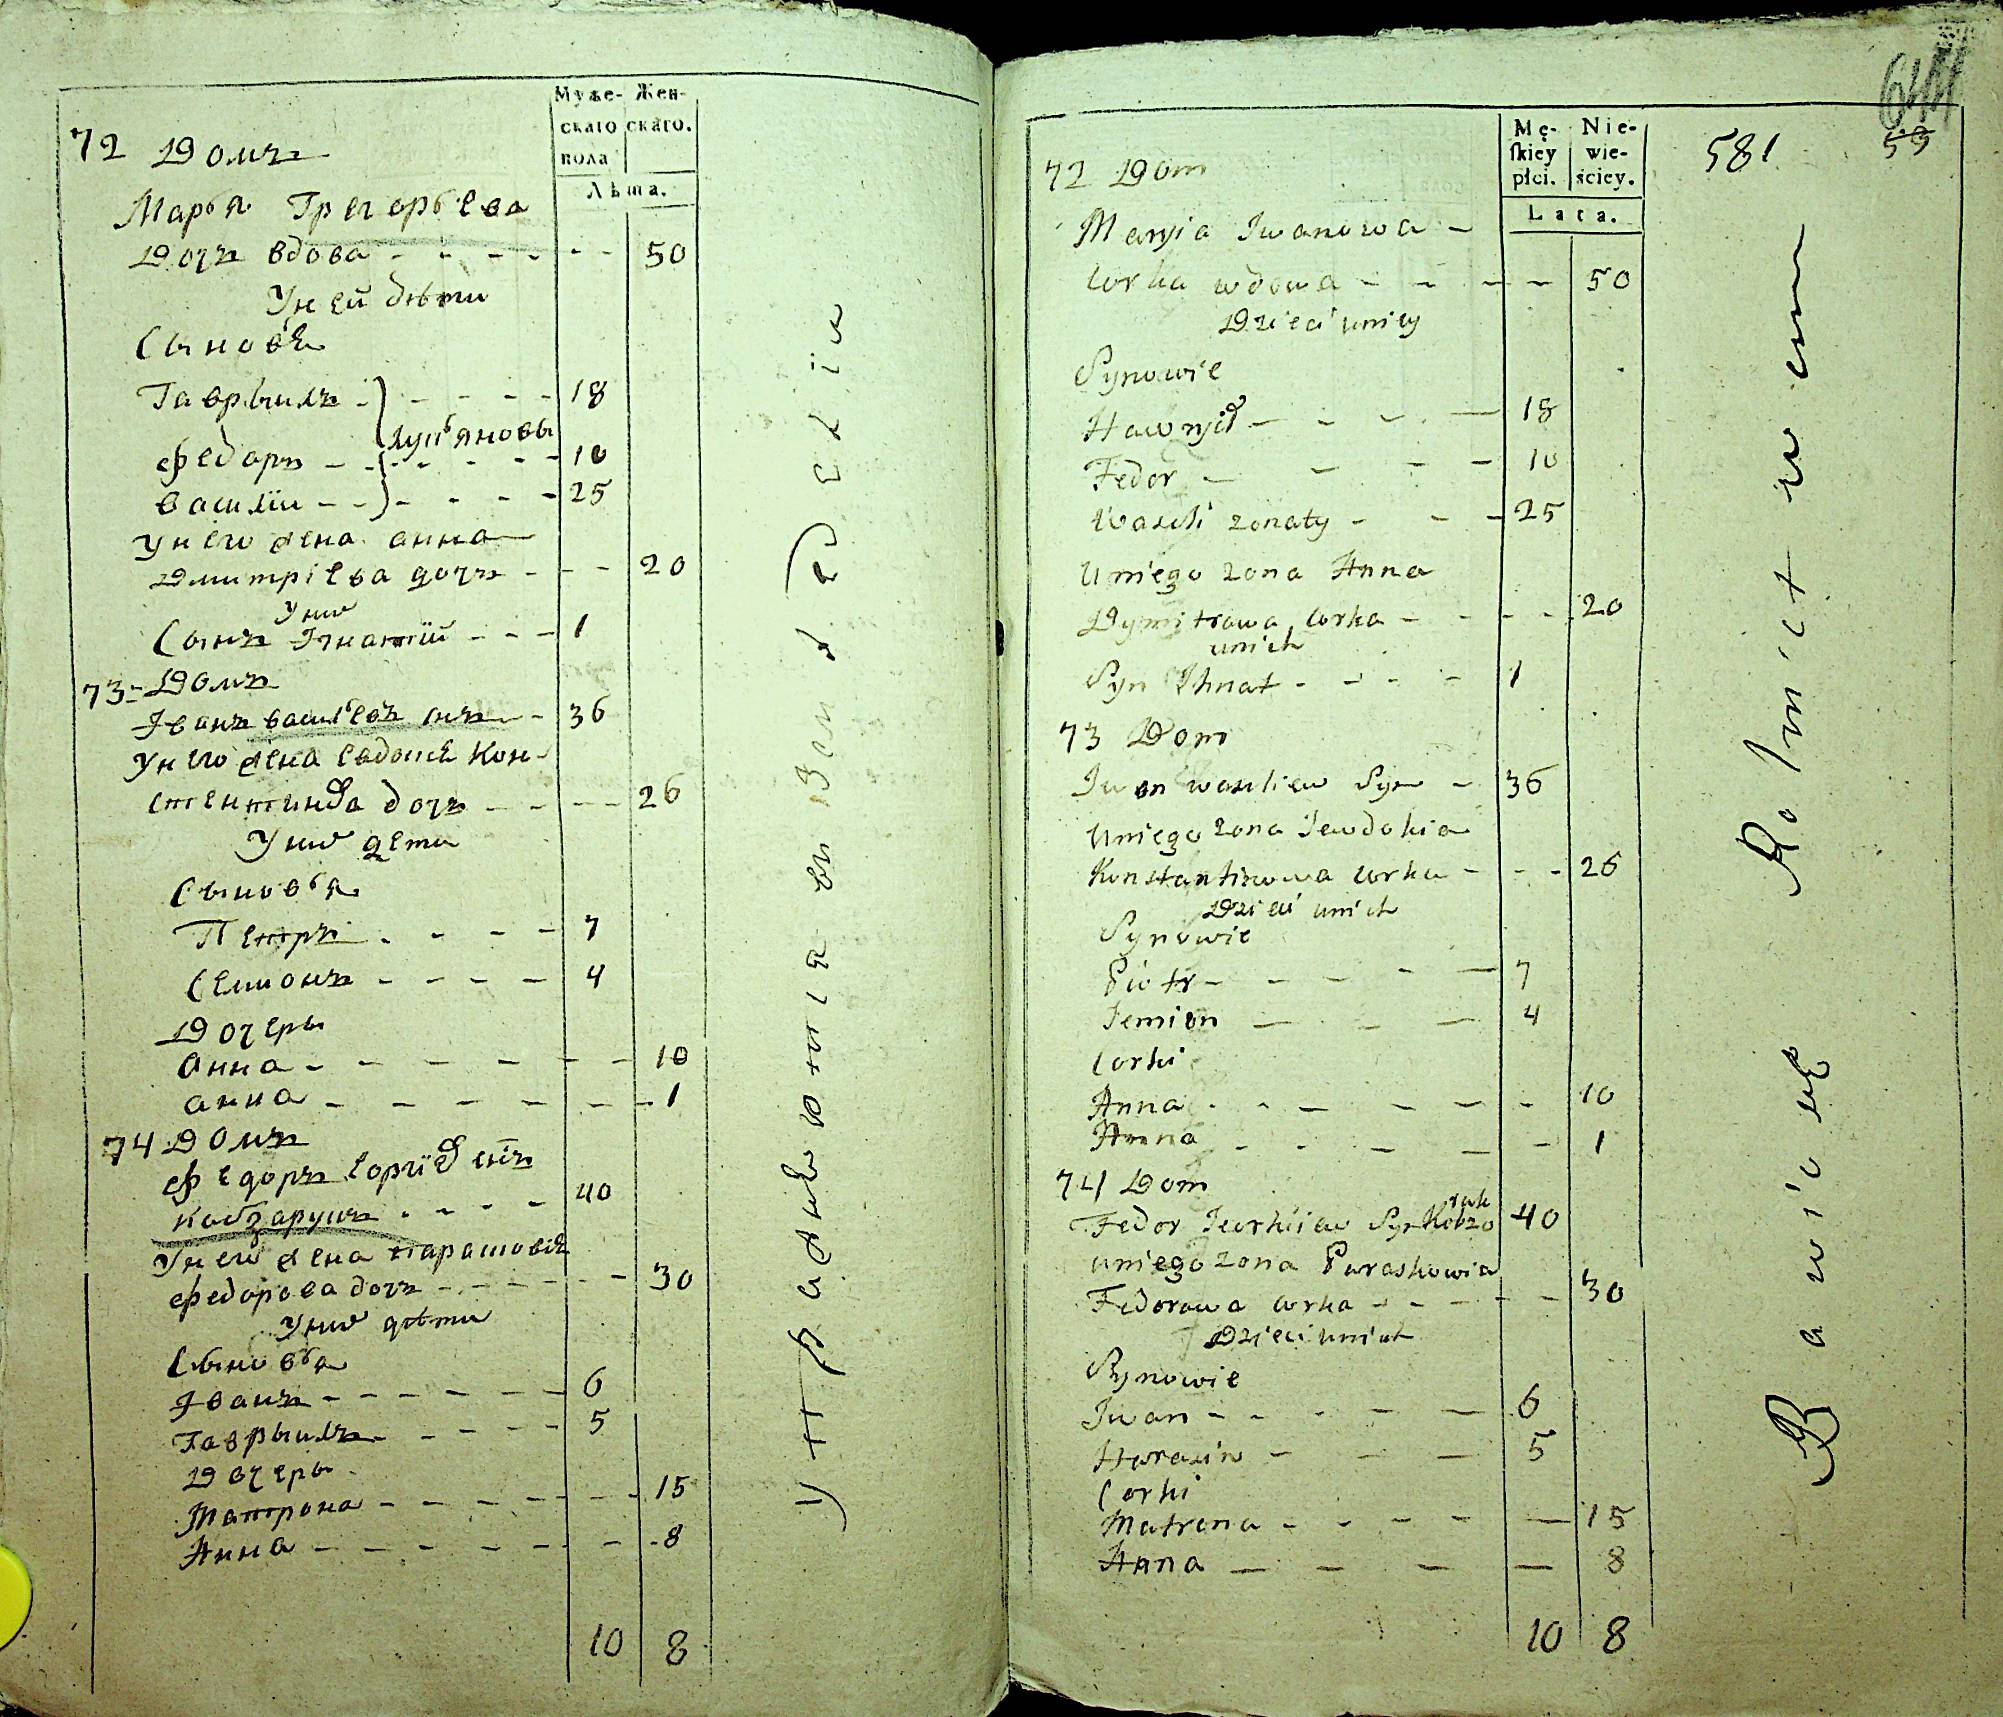 Муже- Жен-
скаго скаго.
пола
Лѣта.
72 Домъ
Марья Григорьева
Дочъ вдова - - - - - - - 50
У ней дѣти
Сыновѣ
Гаврыилъ - - - - - 18
Лукьяновы
Федоръ - - - - - - 10
Василiи - - - - - - 25
У него жена анна
Дмитрiева дочъ - - - 20
У них
Сынъ Iгнатiй - - - 1
73 - Домъ
Iванъ васильевъ снъ - 36
У него жена Евдокiѣ Кон-
стентинова дочъ - - - - 26
У них дети
Сыновья
Петръ - - - - 7
Семионъ - - - - 4
Дочеры
Анна - - - - - - - 10
анна - - - - - - - 1
74 Домъ
Федоръ Еоргiев снъ
Кобзарукъ - - - - 40
У него жена парасковiѣ
Федорова дочъ - - - - - - 30
У них дѣти
Сыновья
Iванъ - - - - - - 6
Гаврыилъ - - - - - 5
Дочеры
Матрона - - - - - - - 15
Анна - - - - - - - - 8
10 8
Упражняются въ Земледелiи
644
59
581
Mę- Nie-
ſkiey wie-
płci. ściey.
Lata.
72 Dom
Maryia Iwanowa -
Corka wdowa - - - - 50
Dzieci uniey
Synowie
Hawryił - - - - 18
Fedor - - - - 10
Wasili zonaty - - - 25
Uniego zona Anna
Dymitrowa Corka - - - - 20
unich
Syn Ihnat - - - - 1
73 Dom
Iwan wasiliew Syn - 36
Uniego zona Jewdokia
Konstantinowa Corka - - - 26
Dzieci unich
Synowie
Piotr - - - - - 7
Semion - - - 4
Corki
Anna - - - - - - 10
Anna - - - - - - 1
74 Dom
ruk
Fedor Jeorhiiew Syn Kobza 40
uniego zona Paraskowia
Fedorowa Corka - - - - - 30
Dzieci unich
Synowie
Iwan - - - - - 6
- - - 5
Corki
Matrona - - - - - 15
Anna - - - - 8
10 8
Bawią się Rolnictwem